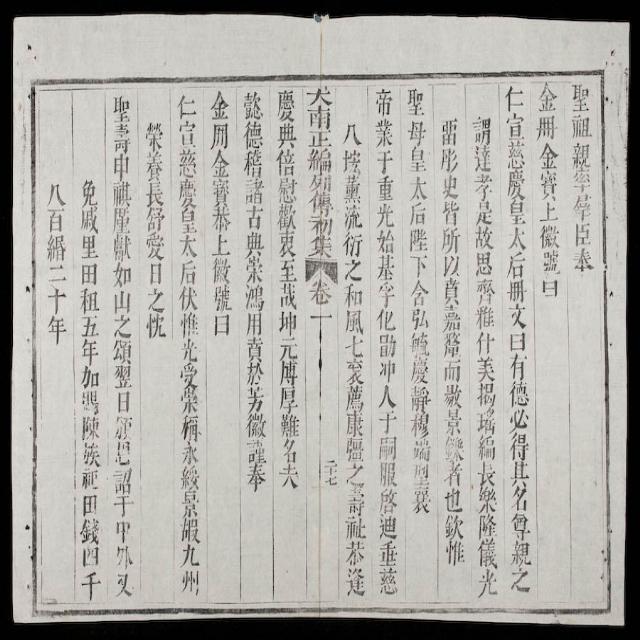 聖祖親率羣臣奉
金冊金寶上徽號曰
仁宣慈慶皇太后冊文曰有德必得其名尊親之
謂達孝是故思齊雅什美揭瑤編長樂隆儀光
畱彤史皆所以真嘉聲而敭景鑠者也欽惟
聖母皇太后陛下含弘毓慶靜穆端型衰
帝業于重光始基孚化勖冲人于嗣服啓迪垂慈
八埏薰流衍之和風七袠薦康彊之壽祉恭逢
大南正編列傳初集 卷一 二十七
慶典倍慰歡衷至哉坤元博厚難名大
懿德稽諸古典榮鴻用賁於芳徽謹奉
金冊金寶恭上徽號曰
仁宣慈慶皇太后伏惟光受榮稱永綏景嘏九州
榮養長舒愛日之忱
聖壽申祺虔獻如山之頌翌日頒恩詔于中外又
免戚里田租五年加賜陳族祀田錢四千
八百緡二十年